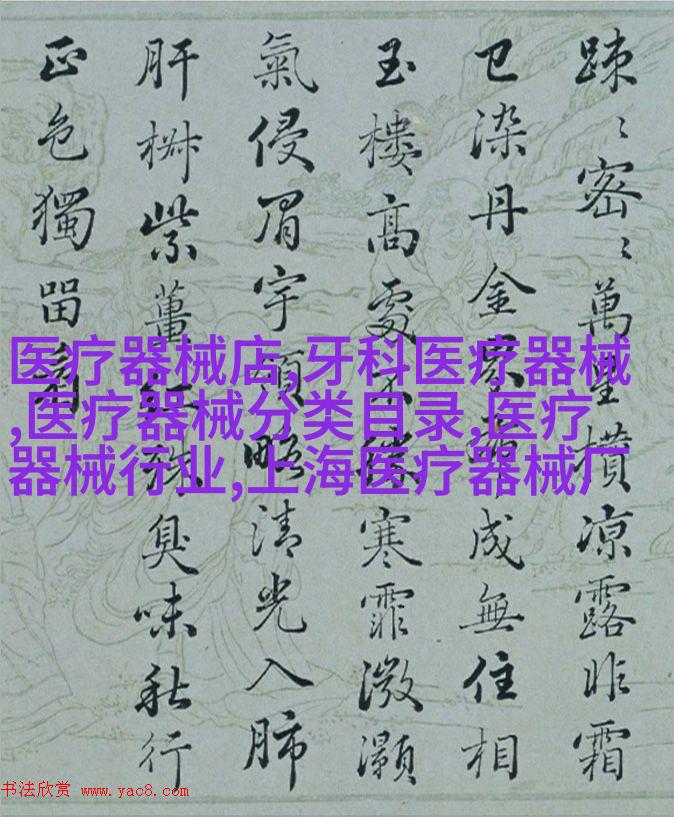 踈〻密〻萬星攢涼露昨霜
已染丹金粟成無住相
玉樓髙處不勝寒霏微灝
氣侵眉宇領略清光入肺
肝椒紫薑紅殊臭味秋行
正色獨留看
医疗器械店,牙科医疗器械
,医疗器械分类目录,医疗
器械行业,上海医疗器械厂
书法欣赏 www.yac8.com